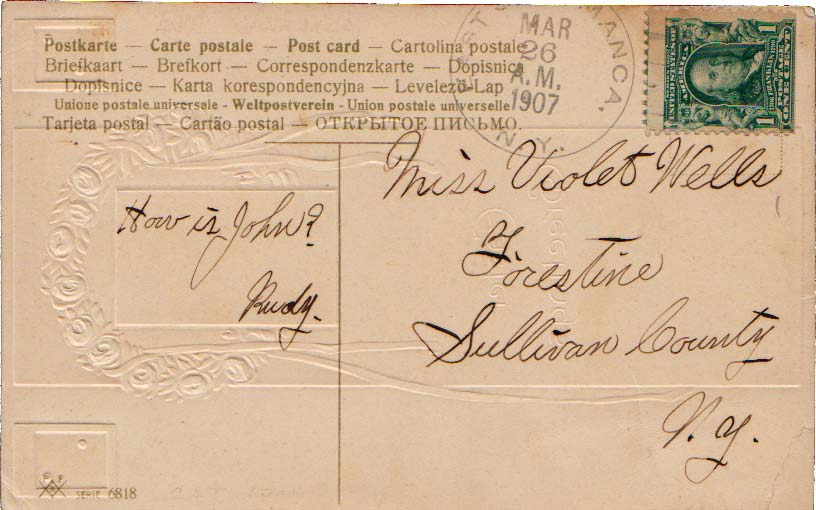 Postkarte — Carte postale — Post card — Cartolina postale
Briefkaart — Brefkort — Correspondenzkarte — Dopisnica
Dopisnice — Karta korespondencyjna — Levelező-Lap
Unione postale universale - Weltpostverein - Union postale universelle
Tarjeta postal — Cartão postal — ОТКРЫТОЕ ПИСЬМО.
MANCA,
N. Y.
MAR
26
A.M.
1907
ONE CENT
Miss Violet Wells
Forestine
Sullivan County
N.Y.
How is John?
Rudy.
SERIE 6818